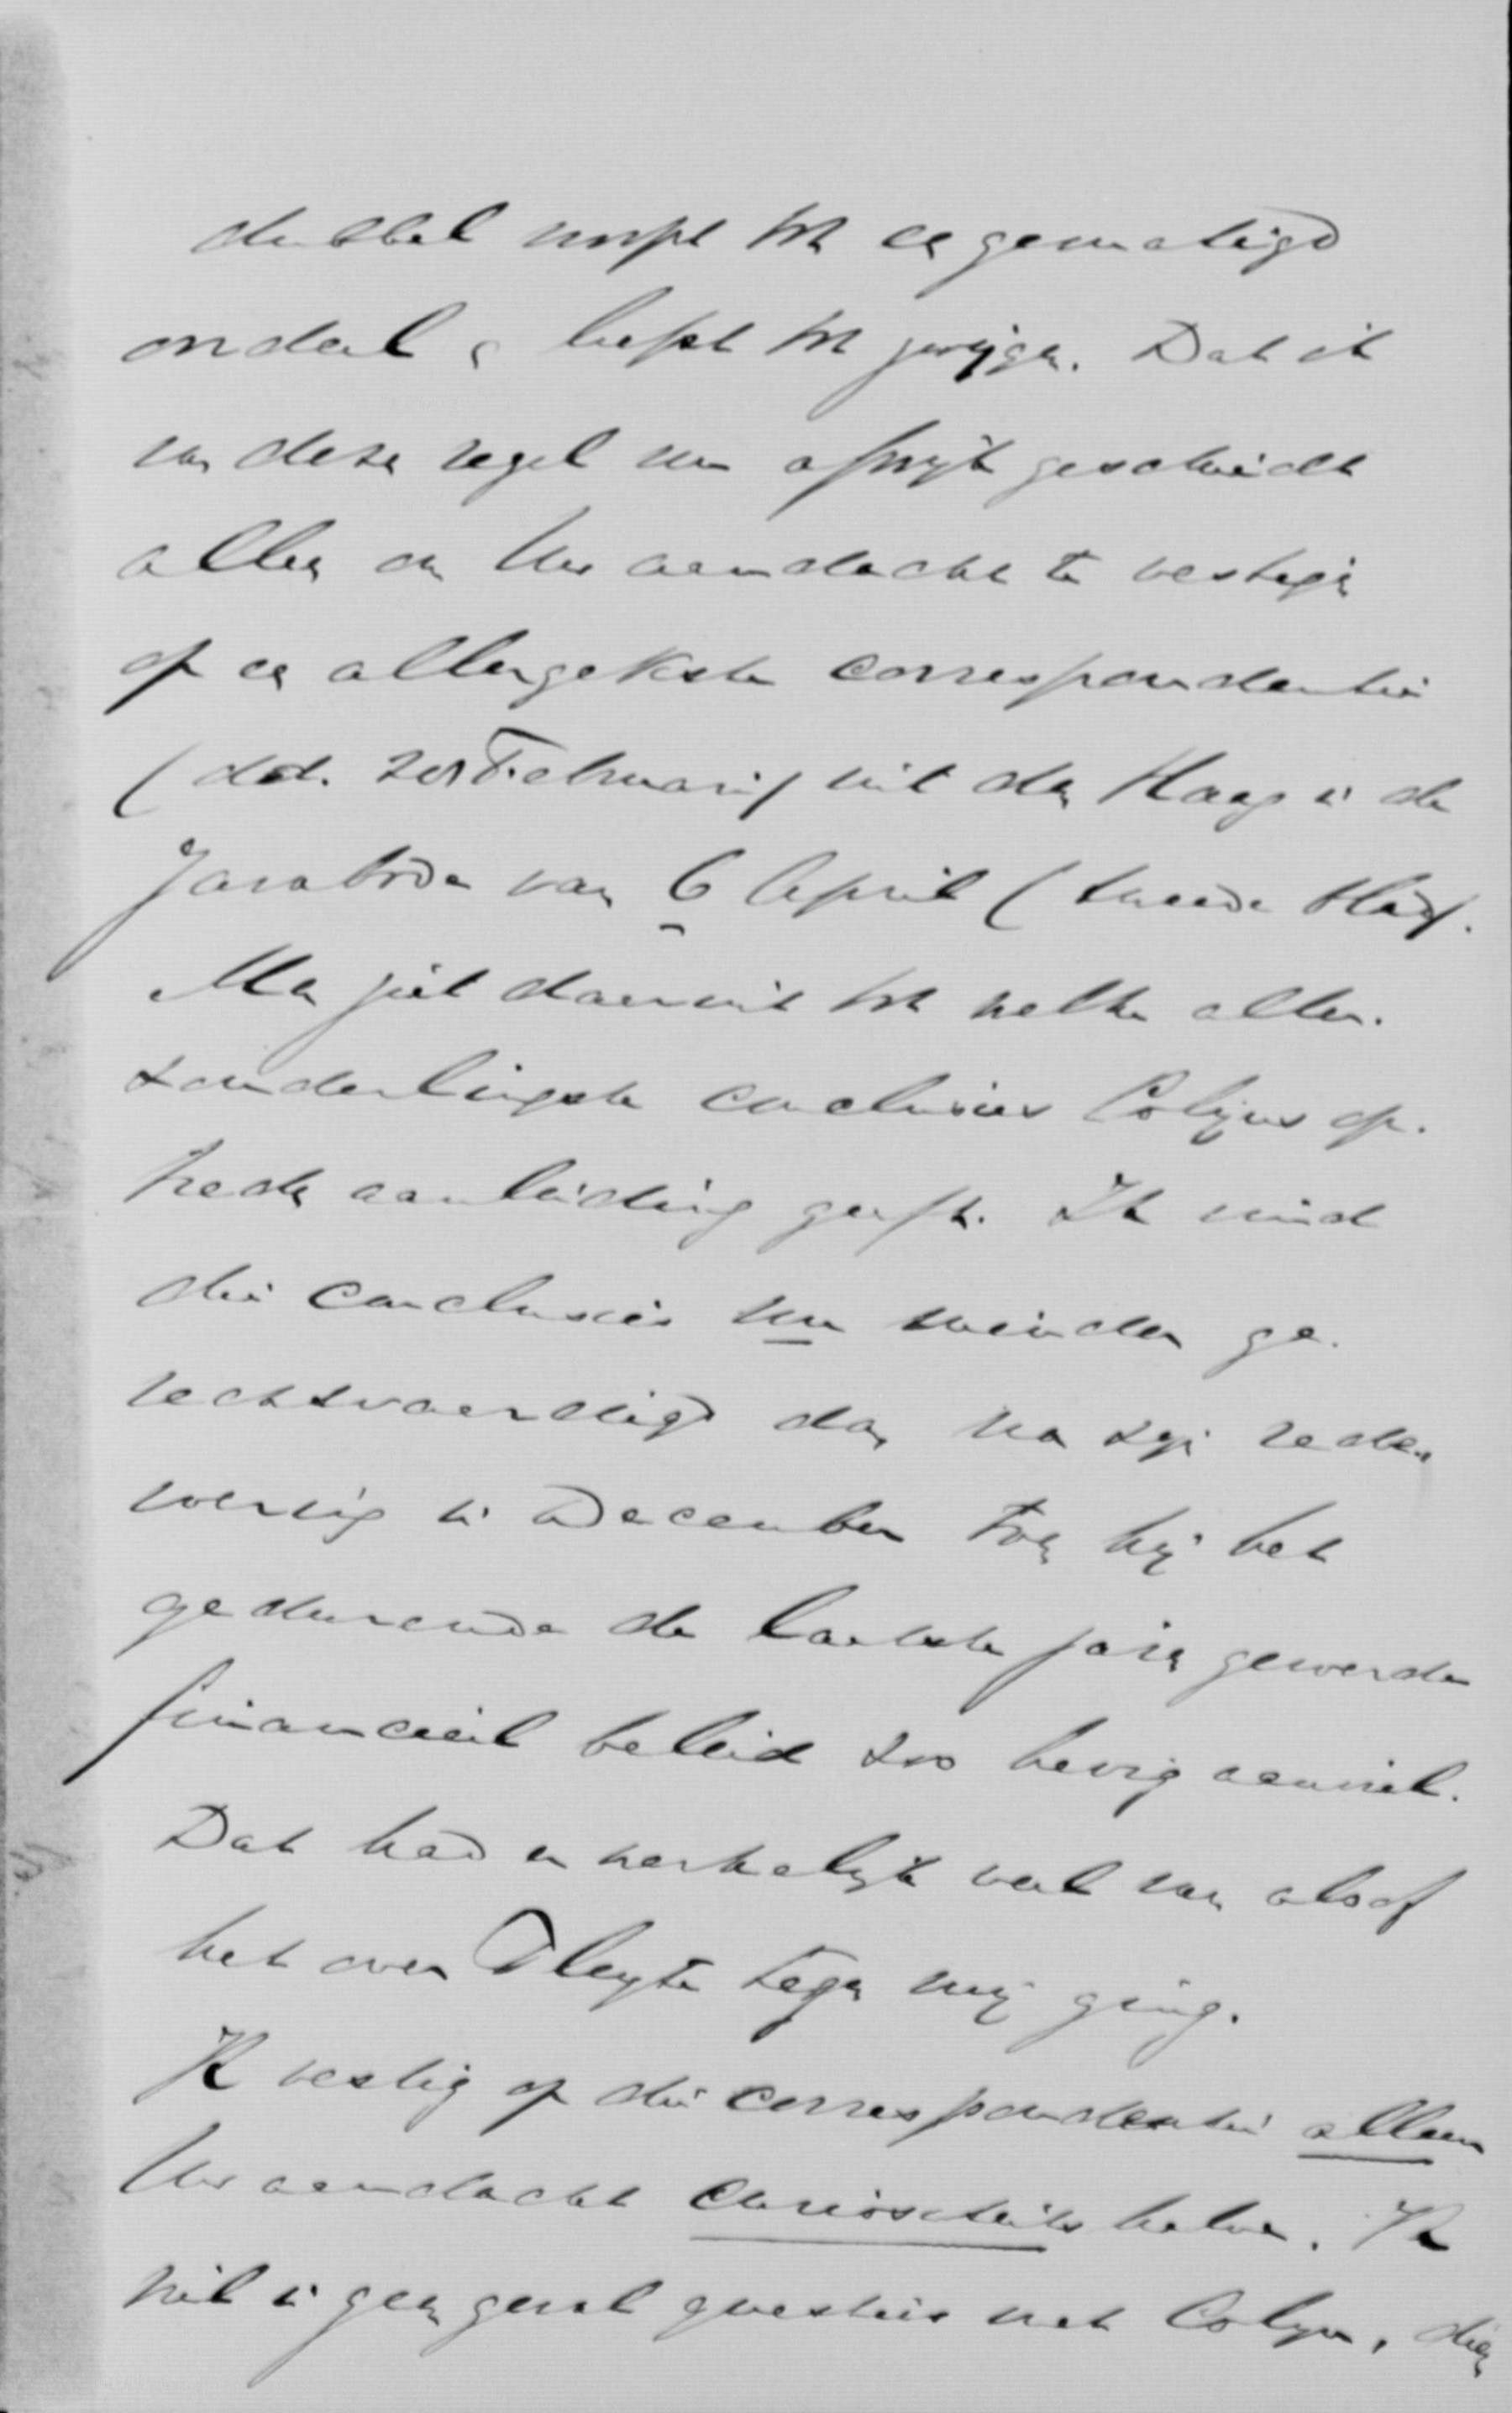 dubbel noopt tot een gematigd
oordeel en liefst tot zwijgen. Dat ik
van dezen regel nu afwijk geschiedt
alleen om Uw aandacht te vestigen
op een allergekste correspondentie
(dd. Februari) uit den Haag in de
Javabode van 6 April (tweede blad).
Men ziet daaruit tot welke aller-
zonderlingste conclusies Colijns op-
treden aanleiding geeft. Ik vind
die conclusies nu minder ge-
rechtvaardigd dan na zijn rede-
voering in December toen hij het
gedurende de laatste jaren gevoerde
financieel beleid zoo hevig aanviel.
Dat had er werkelijk veel van alsof
het over Pleyte tegen mij ging.
Ik vestig op die correspondentie alleen
Uw aandacht curiositeitshalve. Ik
wil in geen geval questies met Colijn, dien